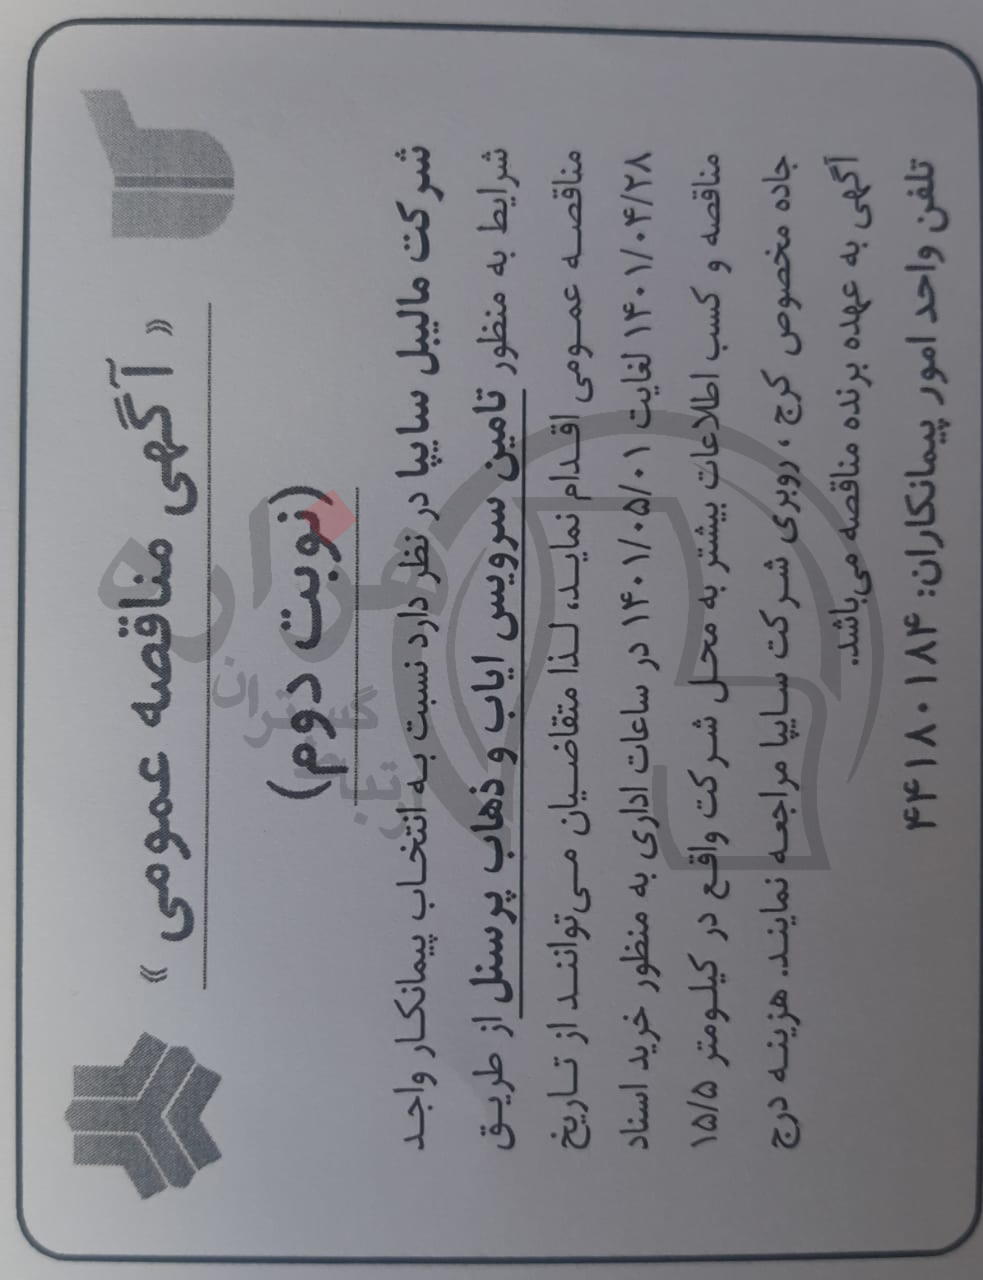 « آگهی مناقصه عمومی »
(نوبت دوم)
شرکت مالیبل سایپا در نظر دارد نسبت به انتخاب پیمانکار واجد
شرایط به منظور تامین سرویس ایاب و ذهاب پرسنل از طریق
مناقصه عمومی اقدام نماید، لذا متقاضیان می‌توانند از تاریخ
۱۴۰۱/۰۴/۲۸ لغایت ۱۴۰۱/۰۵/۰۱ در ساعات اداری به منظور خرید اسناد
مناقصه و کسب اطلاعات بیشتر به محل شرکت واقع در کیلومتر ۱۵/۵
جاده مخصوص کرج ، روبری شرکت سایپا مراجعه نمایند. هزینه درج
آگهی به عهده برنده مناقصه می‌باشد.
تلفن واحد امور پیمانکاران: ۴۴۱۸۰۱۸۴